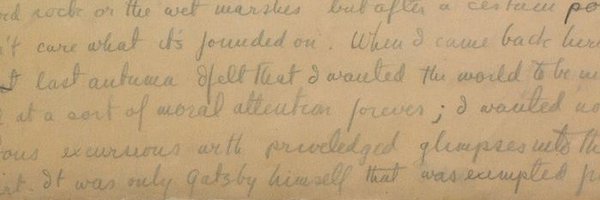 rd rock or the wet marshes but after a certain po
n't care what it's founded on. When I came back here
t last autumn I felt that I wanted the world to be in
at a sort of moral attention forever; I wanted no
ous excursions with priviledged glimpses into the
rt. It was only Gatsby himself that was exempted f